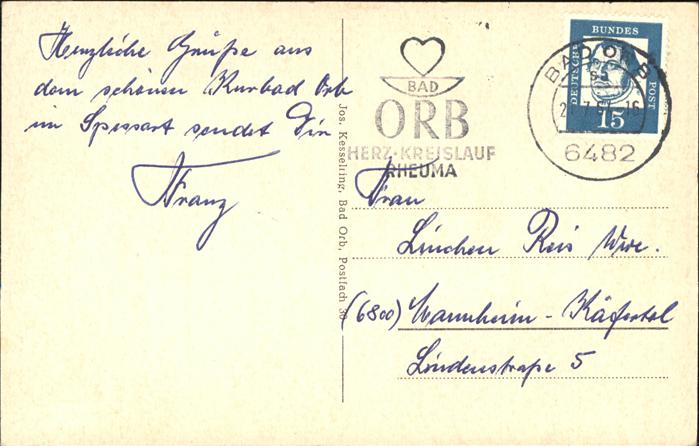 Herzliche Grüße aus
dem schönen Kurbad Orb
im Spessart sendet Dir
Franz
Jos. Kesselring, Bad Orb, Postfach 30
BAD
ORB
HERZ·KREISLAUF
RHEUMA
BAD ORB
6482
DEUTSCHE BUNDESPOST
15
Frau
Linchen Reis Wwe.
(6800) Mannheim - Käfertal
Lindenstraße 5